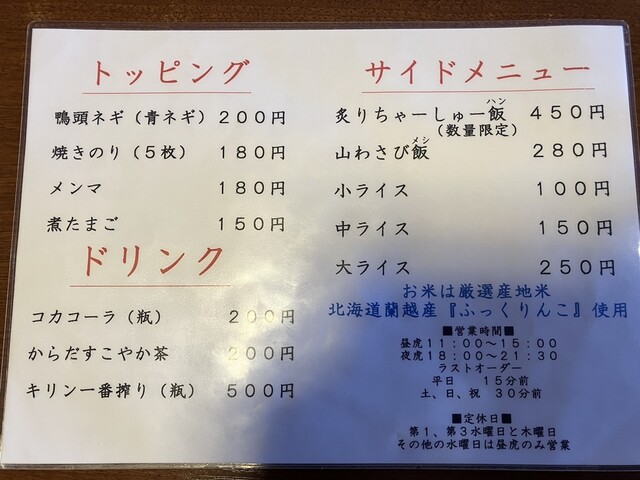 トッピング
鴨頭ネギ（青ネギ）２００円
焼きのり（５枚） １８０円
メンマ １８０円
煮たまご １５０円
ドリンク
コカコーラ（瓶） ２００円
からだすこやか茶 ２００円
キリン一番搾り（瓶） ５００円
サイドメニュー
ハン
炙りちゃーしゅー飯 ４５０円
（数量限定）
メシ
山わさび飯 ２８０円
小ライス １００円
中ライス １５０円
大ライス ２５０円
お米は厳選産地米
北海道蘭越産『ふっくりんこ』使用
■営業時間■
昼虎１１：００～１５：００
夜虎１８：００～２１：３０
ラストオーダー
平日 １５分前
土、日、祝 ３０分前
■定休日■
第１、第３水曜日と木曜日
その他の水曜日は昼虎のみ営業